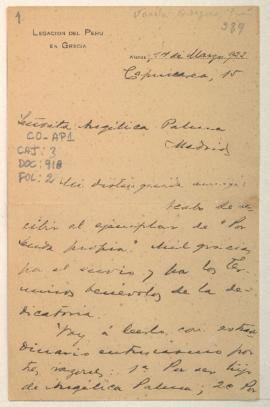 1.
339
LEGACION DEL PERU
EN GRECIA
de Marzo, 922
15
Señorita Angélica Palma
Madrid
CO-AP1
CAJ: 3
DOC: 918
FOL: 2
Mi distinguida amiga:
Acabo de re-
cibir el ejemplar de "Por
senda propia". Mil gracias
por el envío y por los tér-
minos benévolos de la de-
dicatoria.
Voy á leerlo con extraor-
dinario entusiasmo por
tres razones: 1ª Por ser hijo
de Angélica Palma; 2ª Por